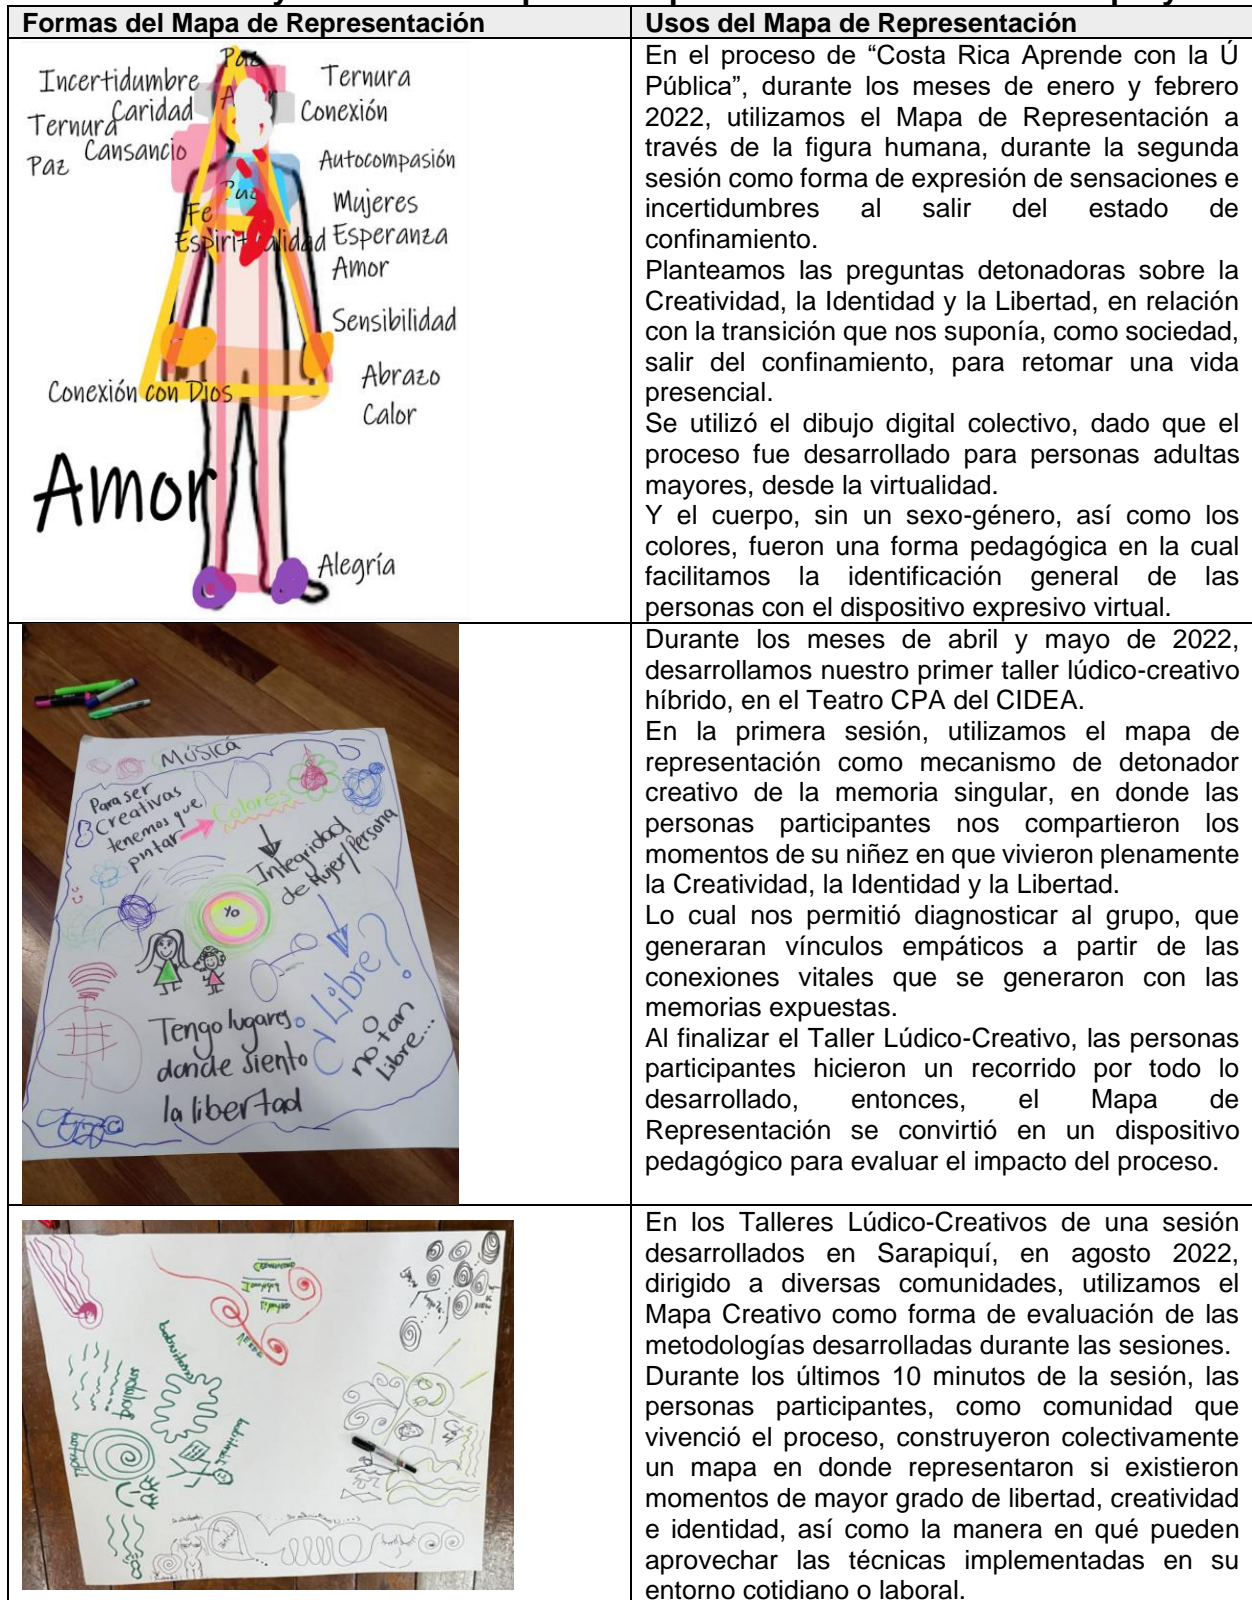 Formas del Mapa de Representación
Usos del Mapa de Representación
Paz
Incertidumbre
Ternura
Caridad
Conexión
Ternura
Cansancio
Paz
Autocompasión
Paz
Mujeres
Fe
Espiritualidad
Esperanza
Amor
Sensibilidad
Abrazo
Conexión con Dios
Calor
Amor
Alegría
En el proceso de “Costa Rica Aprende con la Ú
Pública”, durante los meses de enero y febrero
2022, utilizamos el Mapa de Representación a
través de la figura humana, durante la segunda
sesión como forma de expresión de sensaciones e
incertidumbres al salir del estado de
confinamiento.
Planteamos las preguntas detonadoras sobre la
Creatividad, la Identidad y la Libertad, en relación
con la transición que nos suponía, como sociedad,
salir del confinamiento, para retomar una vida
presencial.
Se utilizó el dibujo digital colectivo, dado que el
proceso fue desarrollado para personas adultas
mayores, desde la virtualidad.
Y el cuerpo, sin un sexo-género, así como los
colores, fueron una forma pedagógica en la cual
facilitamos la identificación general de las
personas con el dispositivo expresivo virtual.
Música
Para ser
Creativas
tenemos que
pintar
Colores
Integridad
de Mujer/Persona
Yo
¿Libre?
O
no tan
Libre...
Tengo lugares
donde siento
la libertad
Durante los meses de abril y mayo de 2022,
desarrollamos nuestro primer taller lúdico-creativo
híbrido, en el Teatro CPA del CIDEA.
En la primera sesión, utilizamos el mapa de
representación como mecanismo de detonador
creativo de la memoria singular, en donde las
personas participantes nos compartieron los
momentos de su niñez en que vivieron plenamente
la Creatividad, la Identidad y la Libertad.
Lo cual nos permitió diagnosticar al grupo, que
generaran vínculos empáticos a partir de las
conexiones vitales que se generaron con las
memorias expuestas.
Al finalizar el Taller Lúdico-Creativo, las personas
participantes hicieron un recorrido por todo lo
desarrollado, entonces, el Mapa de
Representación se convirtió en un dispositivo
pedagógico para evaluar el impacto del proceso.
En los Talleres Lúdico-Creativos de una sesión
desarrollados en Sarapiquí, en agosto 2022,
dirigido a diversas comunidades, utilizamos el
Mapa Creativo como forma de evaluación de las
metodologías desarrolladas durante las sesiones.
Durante los últimos 10 minutos de la sesión, las
personas participantes, como comunidad que
vivenció el proceso, construyeron colectivamente
un mapa en donde representaron si existieron
momentos de mayor grado de libertad, creatividad
e identidad, así como la manera en qué pueden
aprovechar las técnicas implementadas en su
entorno cotidiano o laboral.